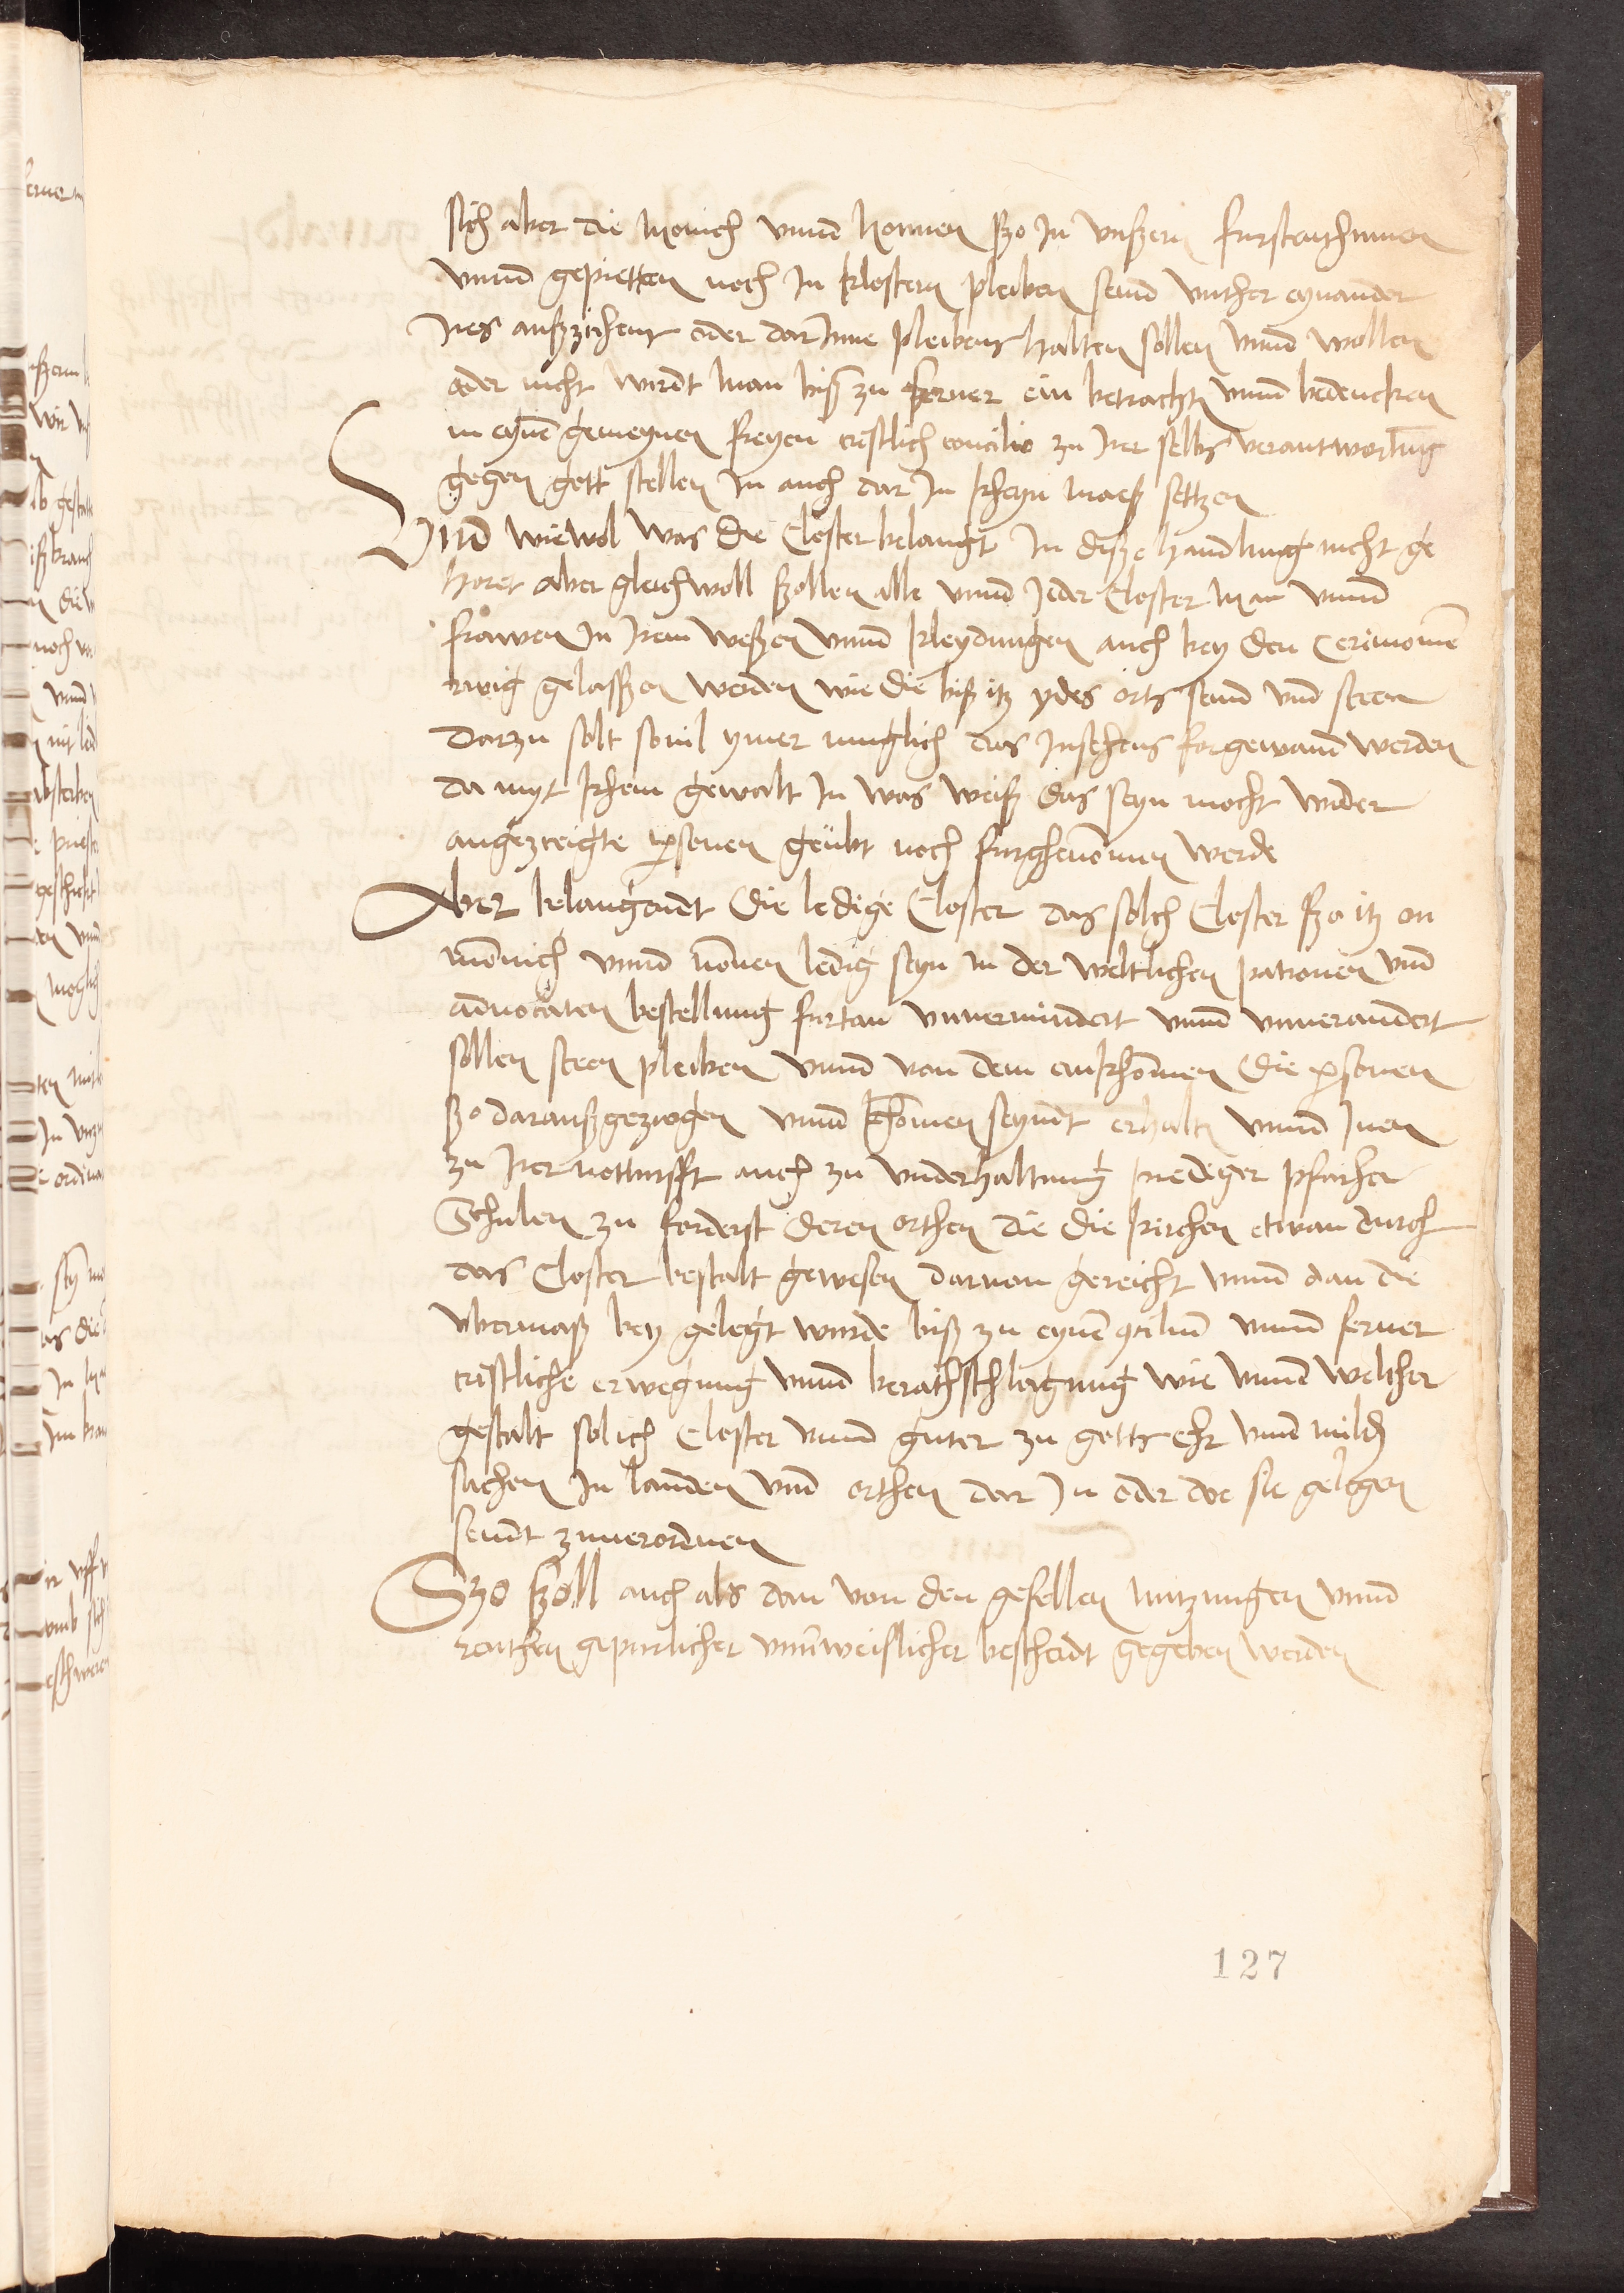 sich aber die Monich vnnd Nonnen ßo In vnßern furstenthumen
vnnd gepietten noch In klostern pleiben seind vnther eynander
Ires außzichens oder dar Inne pleibens halten sollen vnnd wollen
oder nicht wirdt man biß zu ferner ein betracht vnnd bedencken
in eyne gemeynen freyen cristlich concilio zu Irer selbs verantwortung
gegen gott stellen In auch dar In kheyn maeß settzen
Vnd wiewol was die Closter belangt In diße handlung nicht ge
horet aber gleichwoll ßollen alle vnnd Jeder Closter Man vnnd
frawen In Irem weßen vnnd kleydungen auch bey den Cerimonie
rwig gelassßen werden wie die biß itz ydes orts seind vnd steen
darzu solt souil ymer muglich das Insehens forgewand werden
da myt khein gewalt In was weiß das seyn mocht wider
angezreigte personen geubt noch furghenomen werde
Aber belangendt die ledige Closter das solch Closter ßo itz on
monnich vnnd nonen ledig seyn in der weltlichen patronen vnd
aduocaten bestellung furtan vnuermindert vnnd vnuerandert
sollen steen pleiben vnnd von dem einkhomen die personen
ßo darauß gezogen vnnd khomen seyndt erhalten vnnd Inen
zu Irer notturfft auch zu vnderhaltung prediger pfarher
Schulen zu forderst deren orthen die die kirchen etwan durch
das Closter bestalt gewesen daruon gereicht vnnd dan die
vbermaß bey gelegt wurde biß zu eyne cocilium vnnd ferner
cristliche erwegung vnnd berathschlagung wie vnnd welcher
gestalt solich Closter vnnd guter zu gotts ehr vnnd milden
sachen In landen vnd orthen dar In oder do sie gelegen
seindt zuuerordnen
Szo ßoll auch als dan von den gefellen nutzungen vnnd
renthen gepurlicher vnnd weislicher bescheidt gegeben werden
127